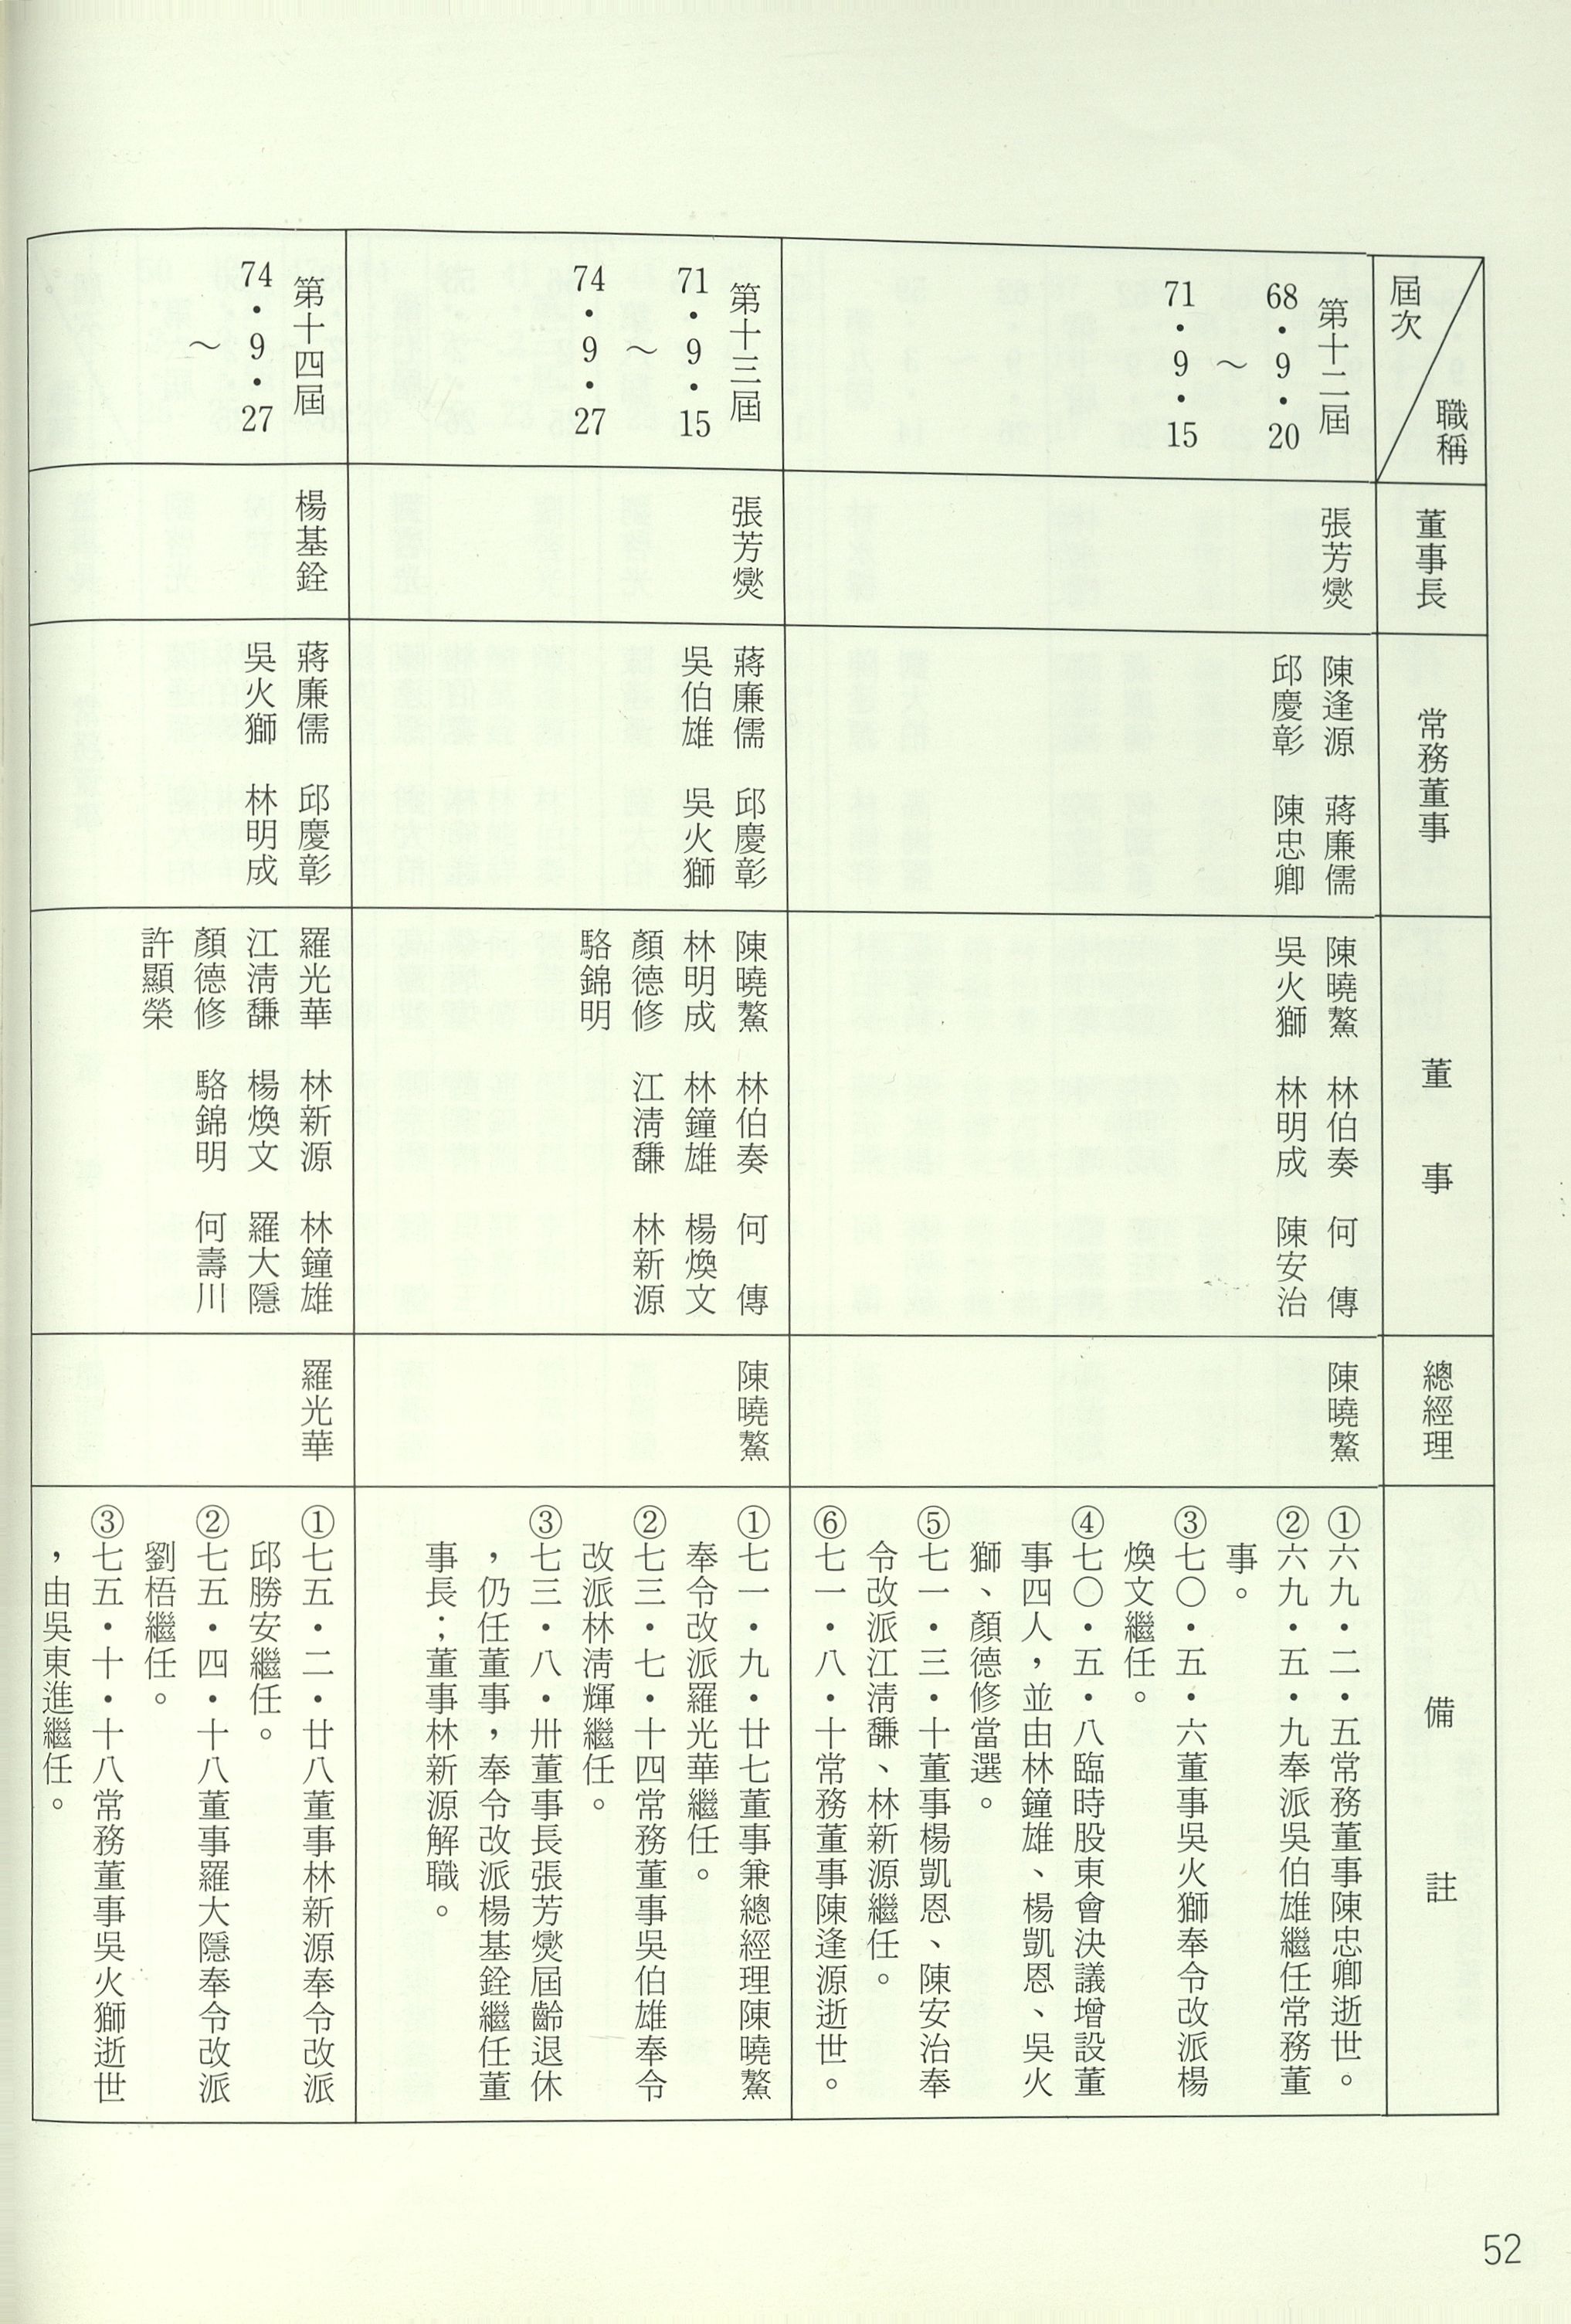 屆次
職稱
董事長
常務董事
董事
總經理
備註
第十二屆
68・9・20
～
71・9・15
張芳燮
陳逢源 蔣廉儒
邱慶彰 陳忠卿
陳曉鰲 林伯奏 何傳
吳火獅 林明成 陳安治
陳曉鰲
①六九・二・五常務董事陳忠卿逝世。
②六九・五・九奉派吳伯雄繼任常務董
事。
③七〇・五・六董事吳火獅奉令改派楊
煥文繼任。
④七〇・五・八臨時股東會決議增設董
事四人，並由林鐘雄、楊凱恩、吳火
獅、顏德修當選。
⑤七一・三・十董事楊凱恩、陳安治奉
令改派江淸馦、林新源繼任。
⑥七一・八・十常務董事陳逢源逝世。
第十三屆
71・9・15
～
74・9・27
張芳燮
蔣廉儒 邱慶彰
吳伯雄 吳火獅
陳曉鰲 林伯奏 何傳
林明成 林鐘雄 楊煥文
顏德修 江淸馦 林新源
駱錦明
陳曉鰲
①七一・九・廿七董事兼總經理陳曉鰲
奉令改派羅光華繼任。
②七三・七・十四常務董事吳伯雄奉令
改派林淸輝繼任。
③七三・八・卅董事長張芳燮屆齡退休
，仍任董事，奉令改派楊基銓繼任董
事長；董事林新源解職。
第十四屆
74・9・27
～
楊基銓
蔣廉儒 邱慶彰
吳火獅 林明成
羅光華 林新源 林鐘雄
江淸馦 楊煥文 羅大隱
顏德修 駱錦明 何壽川
許顯榮
羅光華
①七五・二・廿八董事林新源奉令改派
邱勝安繼任。
②七五・四・十八董事羅大隱奉令改派
劉梧繼任。
③七五・十・十八常務董事吳火獅逝世
，由吳東進繼任。
52